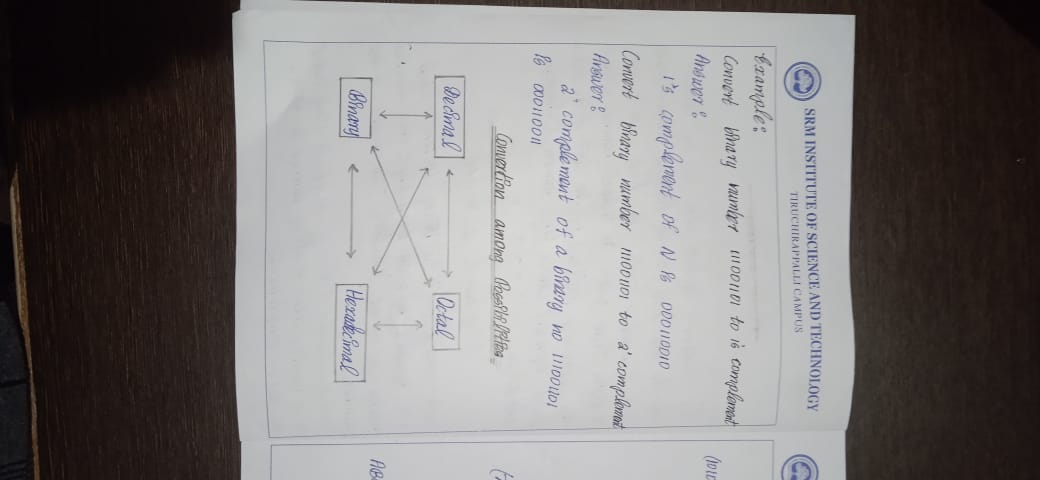 SRM INSTITUTE OF SCIENCE AND TECHNOLOGY
TIRUCHIRAPPALLI CAMPUS
Example:
Convert binary number 111001101 to is complement
Answer:
1's complement of N is 000110010
Convert binary number 111001101 to 2' complement
Answer:
2' complement of a binary no 111001101
is 000110011
Convention among Possibilities
Decimal
Octal
Binary
Hexadecimal